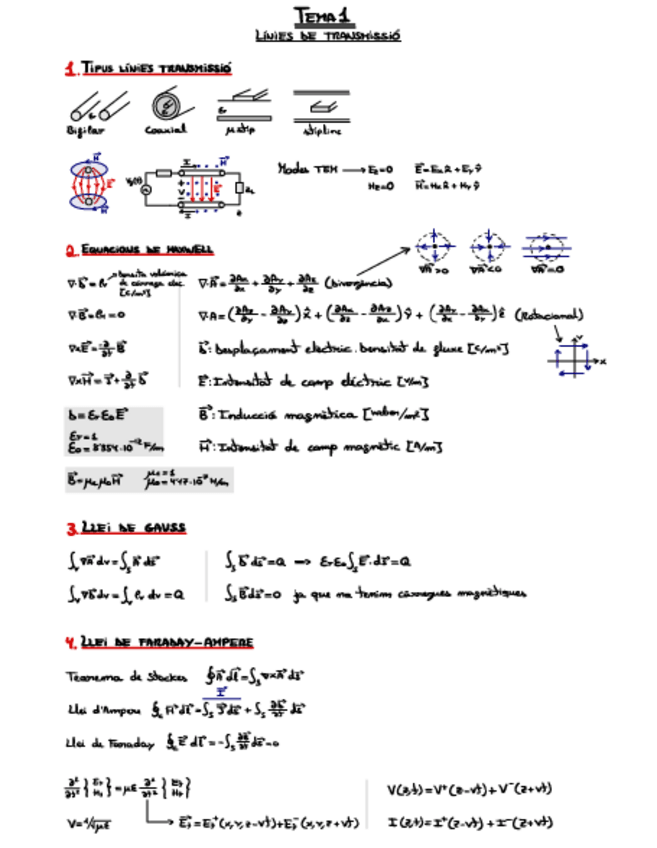 TEMA 1
LÍNIES DE TRANSMISSIÓ
1. TIPUS LÍNIES TRANSMISSIÓ
Bifilar Coaxial μstrip stripline
Modes TEM → Ez=0 E⃗=Ex x̂ + Ey ŷ
Hz=0 H⃗=Hx x̂ + Hy ŷ
2. EQUACIONS DE MAXWELL
∇A⃗>0 ∇A⃗<0 ∇A⃗=0
densitat volúmica de càrrega elec. [C/m³]
∇·D⃗=ρv ∇·A⃗= ∂Ax/∂x + ∂Ay/∂y + ∂Az/∂z (Divergència)
∇·B⃗=ρm=0 ∇·A=(∂Az/∂y - ∂Ay/∂z)x̂ + (∂Ax/∂z - ∂Az/∂x)ŷ + (∂Ay/∂x - ∂Ax/∂y)ẑ (Rotacional)
∇×E⃗=-∂/∂t B⃗ D⃗: Desplaçament electric. Densitat de fluxe [C/m²]
∇×H⃗=J⃗+∂/∂t D⃗ E⃗: Intensitat de camp elèctric [V/m]
D=εr ε0 E⃗ B⃗: Inducció magnètica [weber/m²]
εr=1
ε0=8'854·10⁻¹² F/m H⃗: Intensitat de camp magnètic [A/m]
B⃗=μr μ0 H⃗ μr=1
μ0=4π·10⁻⁷ H/m
3. LLEI DE GAUSS
∫v ∇A⃗ dv=∫s A⃗ ds⃗ ∫s D⃗ ds⃗=Q ⇒ εr ε0 ∫s E⃗·ds⃗=Q
∫v ∇D⃗ dv=∫v ρv dv=Q ∫s B⃗ ds⃗=0 ja que no tenim càrregues magnètiques
4. LLEI DE FARADAY-AMPERE
Teorema de Stockes ∮A⃗ dl⃗=∫s ∇×A⃗ ds⃗
I⃗
Llei d'Ampere ∮c H⃗ dl⃗=∫s J⃗ ds⃗ + ∫s ∂D⃗/∂t ds⃗
Llei de Faraday ∮c E⃗ dl⃗=-∫s ∂B⃗/∂t ds⃗=0
V(z,t)=V⁺(z-vt)+V⁻(z+vt)
V=1/√με E⃗T=ET⁺(x,y,z-vt)+ET⁻(x,y,z+vt) I(z,t)=I⁺(z-vt)+I⁻(z+vt)